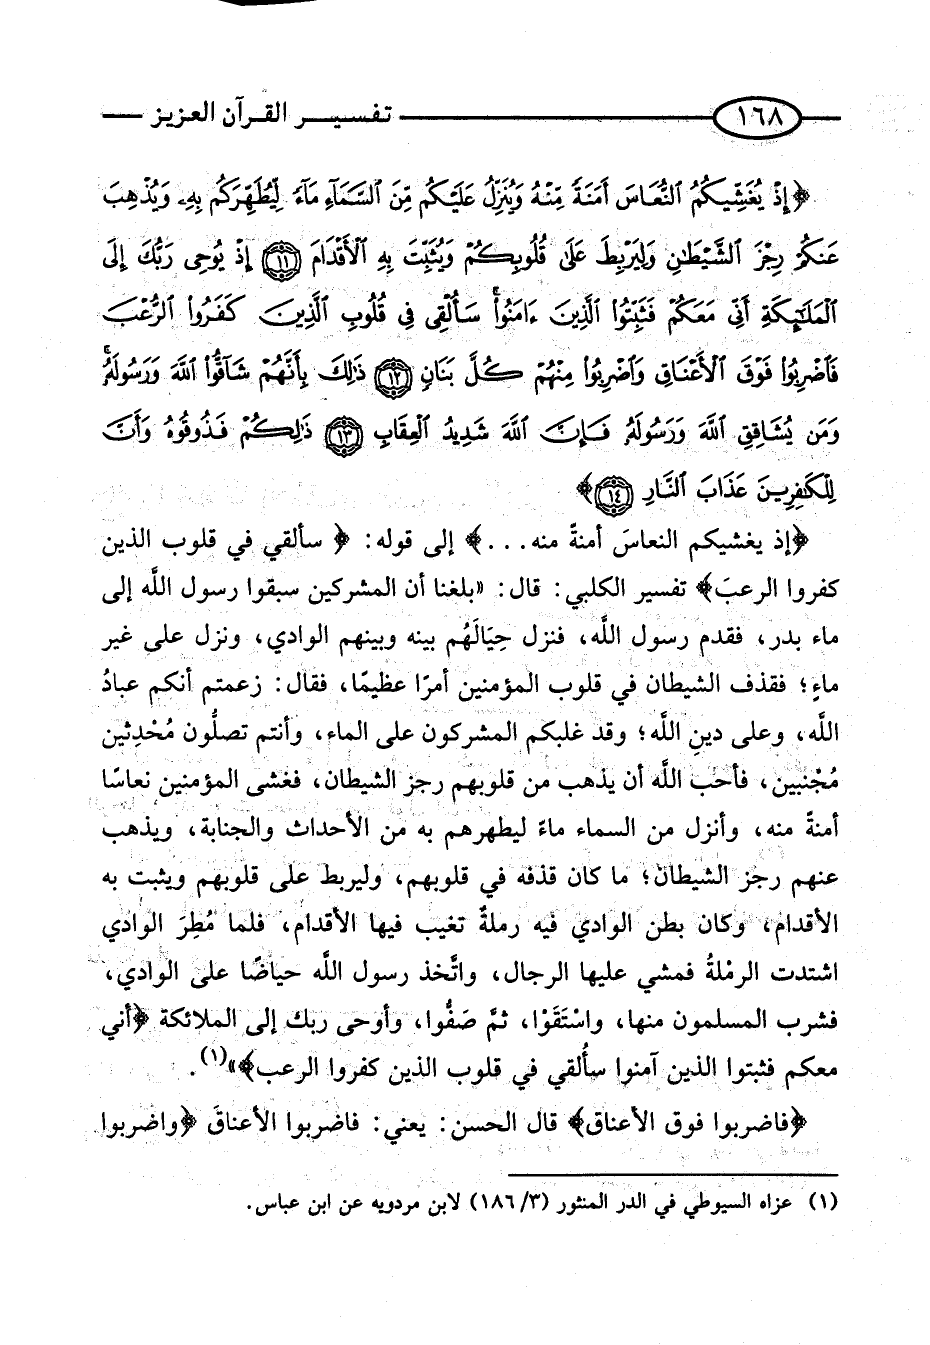 ١٦٨ تفسير القرآن العزيز
﴿إِذْ يُغَشِّيكُمُ النُّعَاسَ أَمَنَةً مِّنْهُ وَيُنَزِّلُ عَلَيْكُم مِّنَ السَّمَآءِ مَآءً لِّيُطَهِّرَكُم بِهِۦ وَيُذْهِبَ
عَنكُمْ رِجْزَ الشَّيْطَانِ وَلِيَرْبِطَ عَلَىٰ قُلُوبِكُمْ وَيُثَبِّتَ بِهِ الْأَقْدَامَ ﴿١١﴾ إِذْ يُوحِى رَبُّكَ إِلَى
الْمَلَٰٓئِكَةِ أَنِّى مَعَكُمْ فَثَبِّتُوا۟ الَّذِينَ ءَامَنُوا۟ۚ سَأُلْقِى فِى قُلُوبِ الَّذِينَ كَفَرُوا۟ الرُّعْبَ
فَاضْرِبُوا۟ فَوْقَ الْأَعْنَاقِ وَاضْرِبُوا۟ مِنْهُمْ كُلَّ بَنَانٍ ﴿١٢﴾ ذَٰلِكَ بِأَنَّهُمْ شَآقُّوا۟ اللَّهَ وَرَسُولَهُۥۚ
وَمَن يُشَاقِقِ اللَّهَ وَرَسُولَهُۥ فَإِنَّ اللَّهَ شَدِيدُ الْعِقَابِ ﴿١٣﴾ ذَٰلِكُمْ فَذُوقُوهُ وَأَنَّ
لِلْكَٰفِرِينَ عَذَابَ النَّارِ ﴿١٤﴾﴾
﴿إذ يغشيكم النعاسَ أمنةً منه...﴾ إلى قوله: ﴿سألقي في قلوب الذين
كفروا الرعبَ﴾ تفسير الكلبي: قال: «بلغنا أن المشركين سبقوا رسول اللَّه إلى
ماء بدر، فقدم رسول اللَّه، فنزل حِيَالَهُم بينه وبينهم الوادي، ونزل على غير
ماءٍ؛ فقذف الشيطان في قلوب المؤمنين أمرًا عظيمًا، فقال: زعمتم أنكم عبادُ
اللَّه، وعلى دينِ اللَّه؛ وقد غلبكم المشركون على الماء، وأنتم تصلُّون مُحْدِثين
مُجْنبين، فأحب اللَّه أن يذهب من قلوبهم رجز الشيطان، فغشى المؤمنين نعاسًا
أمنةً منه، وأنزل من السماء ماءً ليطهرهم به من الأحداث والجنابة، ويذهب
عنهم رجز الشيطان؛ ما كان قذفه في قلوبهم، وليربط على قلوبهم ويثبت به
الأقدام، وكان بطن الوادي فيه رملةٌ تغيب فيها الأقدام، فلما مُطِرَ الوادي
اشتدت الرمْلةُ فمشي عليها الرجال، واتَّخذ رسول اللَّه حياضًا على الوادي،
فشرب المسلمون منها، واسْتَقَوْا، ثمَّ صَفُّوا، وأوحى ربك إلى الملائكة ﴿أني
معكم فثبتوا الذين آمنوا سأُلقي في قلوب الذين كفروا الرعب﴾»(١).
﴿فاضربوا فوق الأعناق﴾ قال الحسن: يعني: فاضربوا الأعناقَ ﴿واضربوا
(١) عزاه السيوطي في الدر المنثور (٣/ ١٨٦) لابن مردويه عن ابن عباس.